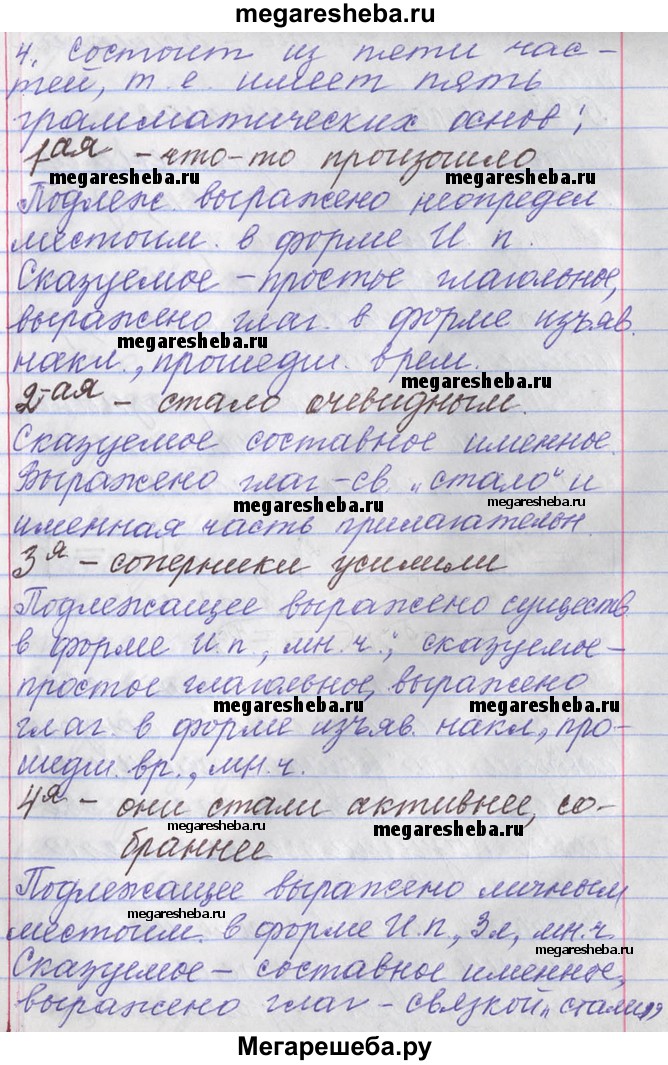 megaresheba.ru
4. Состоит из пяти час-
тей, т. е. имеет пять
megaresheba.ru
грамматических основ:
1ая - что-то произошло
megaresheba.ru megaresheba.ru
Подлеж. выражено неопредел.
местоим. в форме И. п.
Сказуемое - простое глагольное,
выражено глаг. в форме изъяв.
megaresheba.ru
накл., прошедш. врем.
megaresheba.ru
2-ая - стало очевидным.
Сказуемое составное именное.
Выражено глаг-св. „стало" и
megaresheba.ru megaresheba.ru
именная часть прилагательн.
3я - соперники усилили
megaresheba.ru
Подлежащее выражено существ.
в форме И.п., мн.ч.; сказуемое-
простое глагольное, выражено
megaresheba.ru megaresheba.ru
глаг. в форме изъяв. накл., про-
шедш. вр., мн.ч.
4я - они стали активнее, со-
megaresheba.ru megaresheba.ru
браннее
Подлежащее выражено личным
megaresheba.ru
местоим. в форме И.п., 3л., мн.ч.
megaresheba.ru
Сказуемое - составное именное,
выражено глаг - связкой „стали"
Мегарешеба.ру